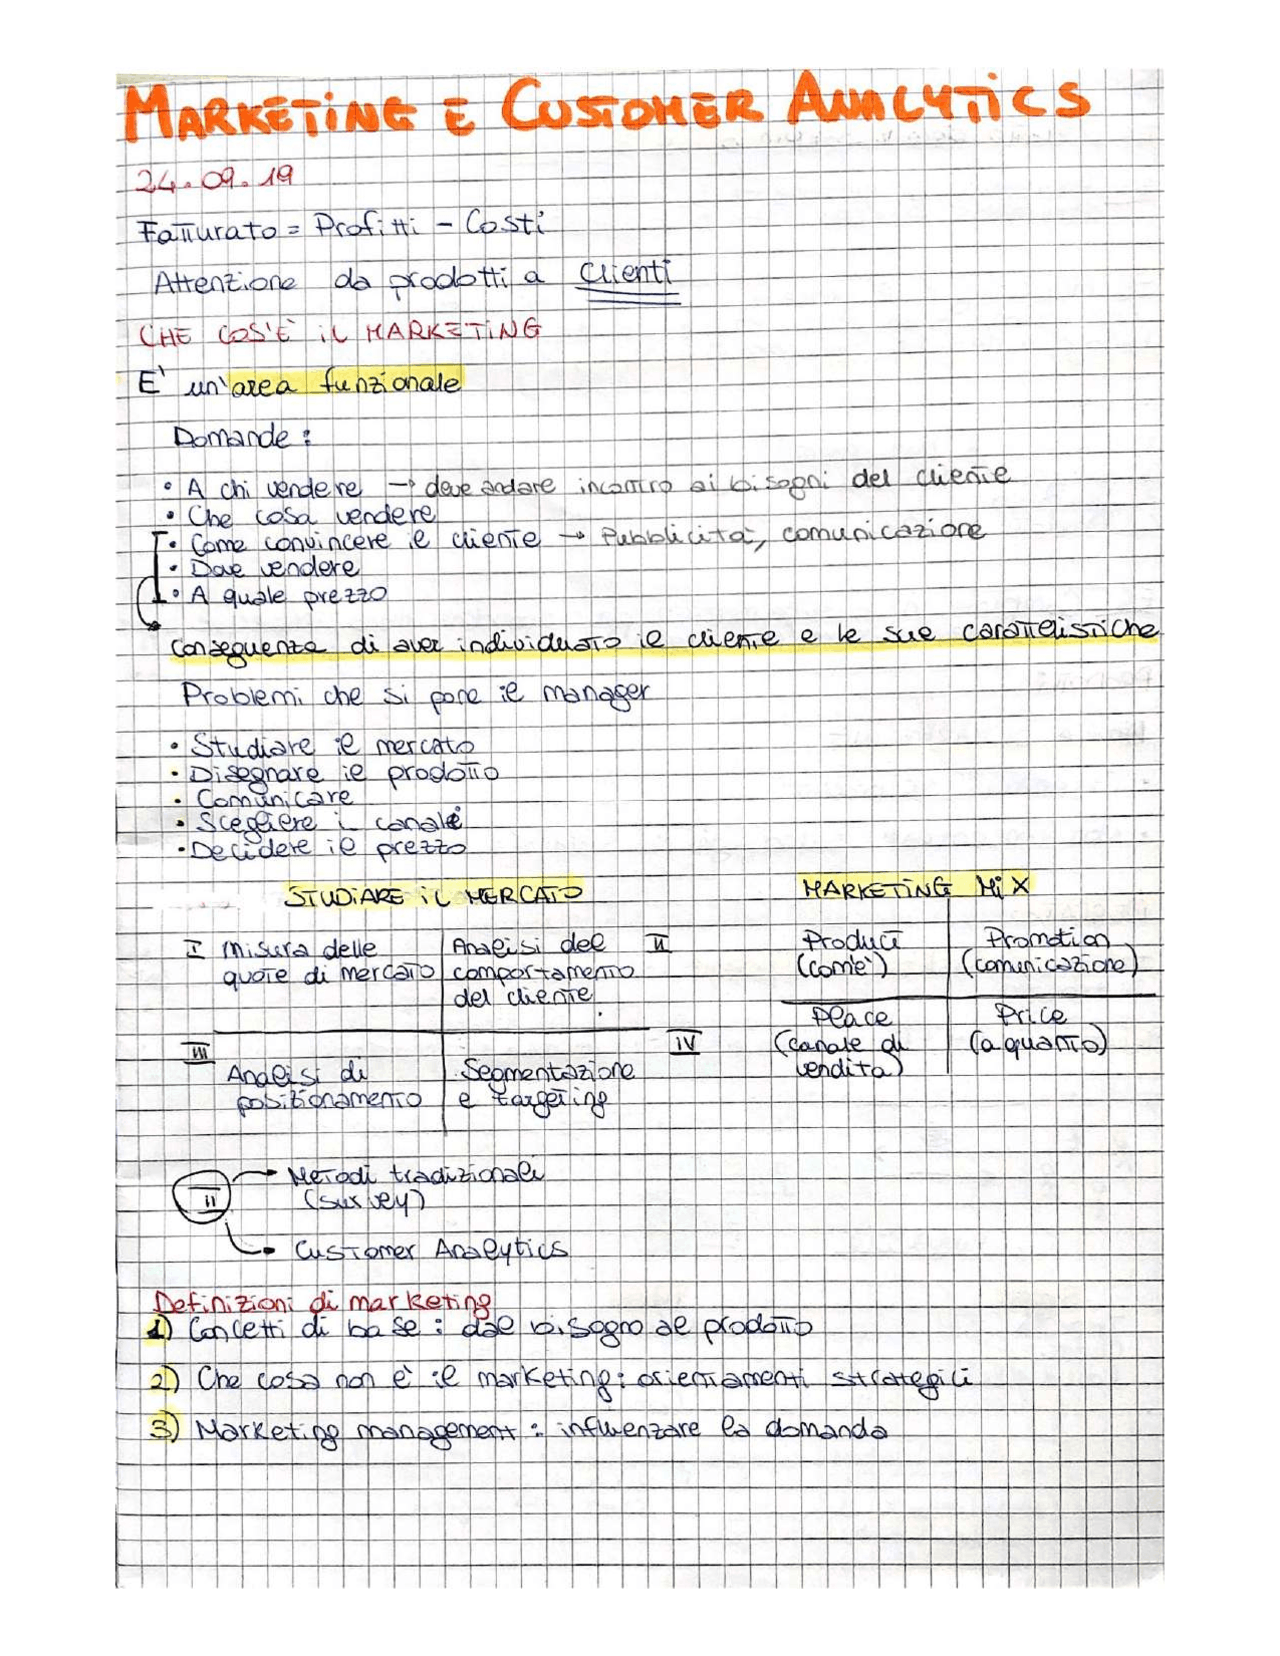 MARKETING E CUSTOMER ANALYTICS
24.09.19
Fatturato = Profitti - Costi
Attenzione da prodotti a clienti
CHE COS'È IL MARKETING
E' un'area funzionale
Domande:
• A chi vendere → deve andare incontro ai bisogni del cliente
• Che cosa vendere
• Come convincere il cliente → Pubblicità, comunicazione
• Dove vendere
• A quale prezzo
conseguenza di aver individuato il cliente e le sue caratteristiche
Problemi che si pone il manager
• Studiare il mercato
• Disegnare il prodotto
• Comunicare
• Scegliere i canale
• Decidere il prezzo
STUDIARE IL MERCATO
I Misura delle
quote di mercato
Analisi del II
comportamento
del cliente.
III
Analisi di
posizionamento
IV
Segmentazione
e targeting
MARKETING MIX
Product
(com'è)
Promotion
(comunicazione)
Place
(canale di
vendita)
Price
(a quanto)
II
→ Metodi tradizionali
(survey)
→ Customer Analytics
Definizioni di marketing
1) Concetti di base: dal bisogno al prodotto
2) Che cosa non è il marketing: orientamenti strategici
3) Marketing management: influenzare la domanda